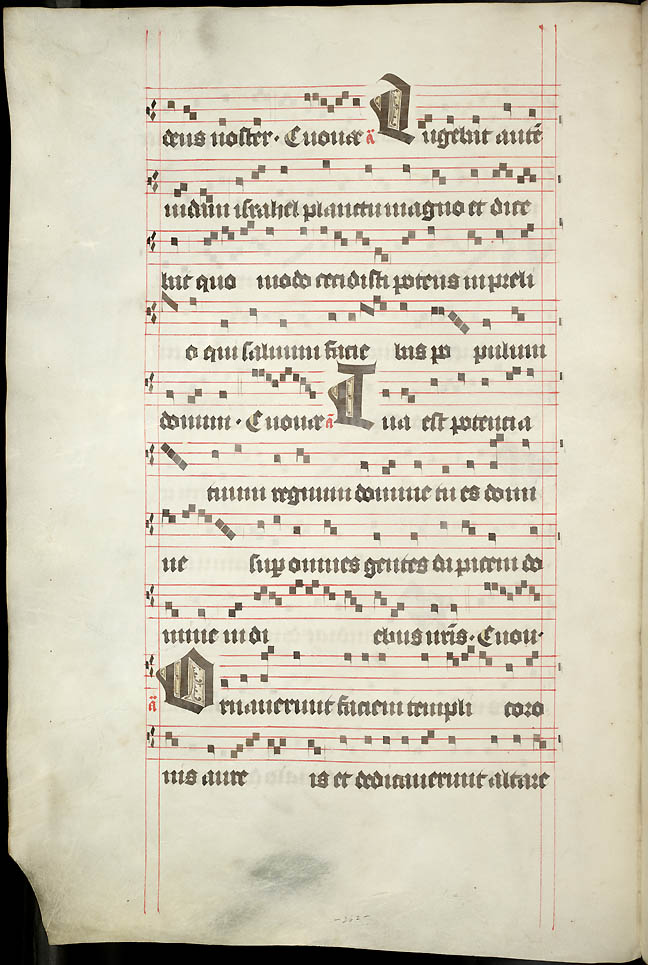 deus noster · Euouae a̅ Lugebat aute̅
Iudam israhel planctu magno et dice
bat quo modo cecidisti potens in preli
o qui saluum facie bas po pulum
domini · Euouae a̅ Tua est potencia
tuum regnum domine tu es domi
ne sup omnes gentes da pacem do
mine in di ebus nr̅is · Euou ·
a̅ Ornauerunt faciem templi coro
nis aure is et dedicauerunt altare
-262-